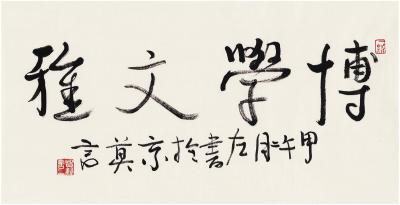 博學文雅
甲午月左書於京莫言